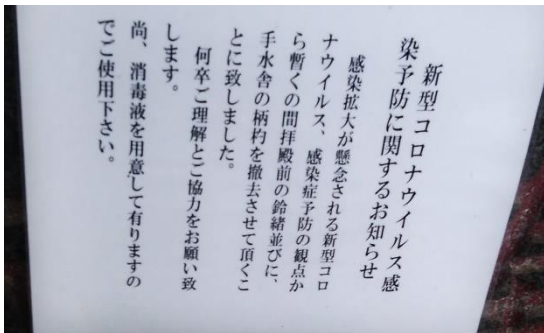 新型コロナウイルス感
染予防に関するお知らせ
感染拡大が懸念される新型コロ
ナウイルス、感染症予防の観点か
ら暫くの間拝殿前の鈴緒並びに、
手水舎の柄杓を撤去させて頂くこ
とに致しました。
何卒ご理解とご協力をお願い致
します。
尚、消毒液を用意して有りますの
でご使用下さい。